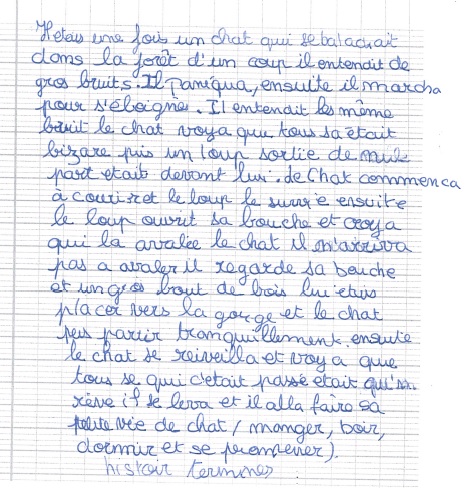 Il etais une fois un chat qui se baladrait
dans la forêt d'un coup il entendait de
gros bruits. Il paniqua, ensuite il marcha
pour s'éloigné. Il entendait les même
bruit le chat voya que tous sa était
bizare puis un loup sortie de nulle
part etait devant lui. de Chat commença
à courir et le loup le suivie ensuite
le loup ouvrit sa bouche et croya
qui la avalée le chat il n'arriva
pas a avaler il regarde sa bouche
et un gros bout de bois lui etais
placer vers la gorge et le chat
peu partir tranquillement. ensuite
le chat se reiveilla et voya que
tous se qui c'etait passé etait qu'un
rêve il se leva et il alla faire sa
petite vie de chat (manger, boir,
dormir et se promener).
histoir terminer